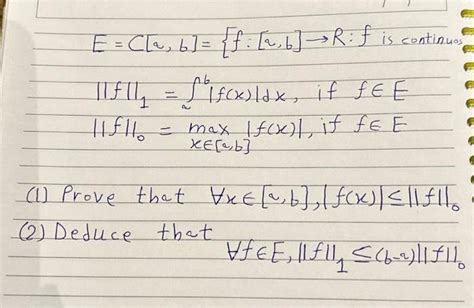 E = C[a, b] = {f : [a, b] → R : f is continuos
||f||₁ = ∫ₐᵇ |f(x)| dx, if f ∈ E
||f||₀ = max |f(x)|, if f ∈ E
x∈[a,b]
(1) Prove that ∀x ∈ [a, b], |f(x)| ≤ ||f||₀
(2) Deduce that
∀f ∈ E, ||f||₁ ≤ (b-a) ||f||₀